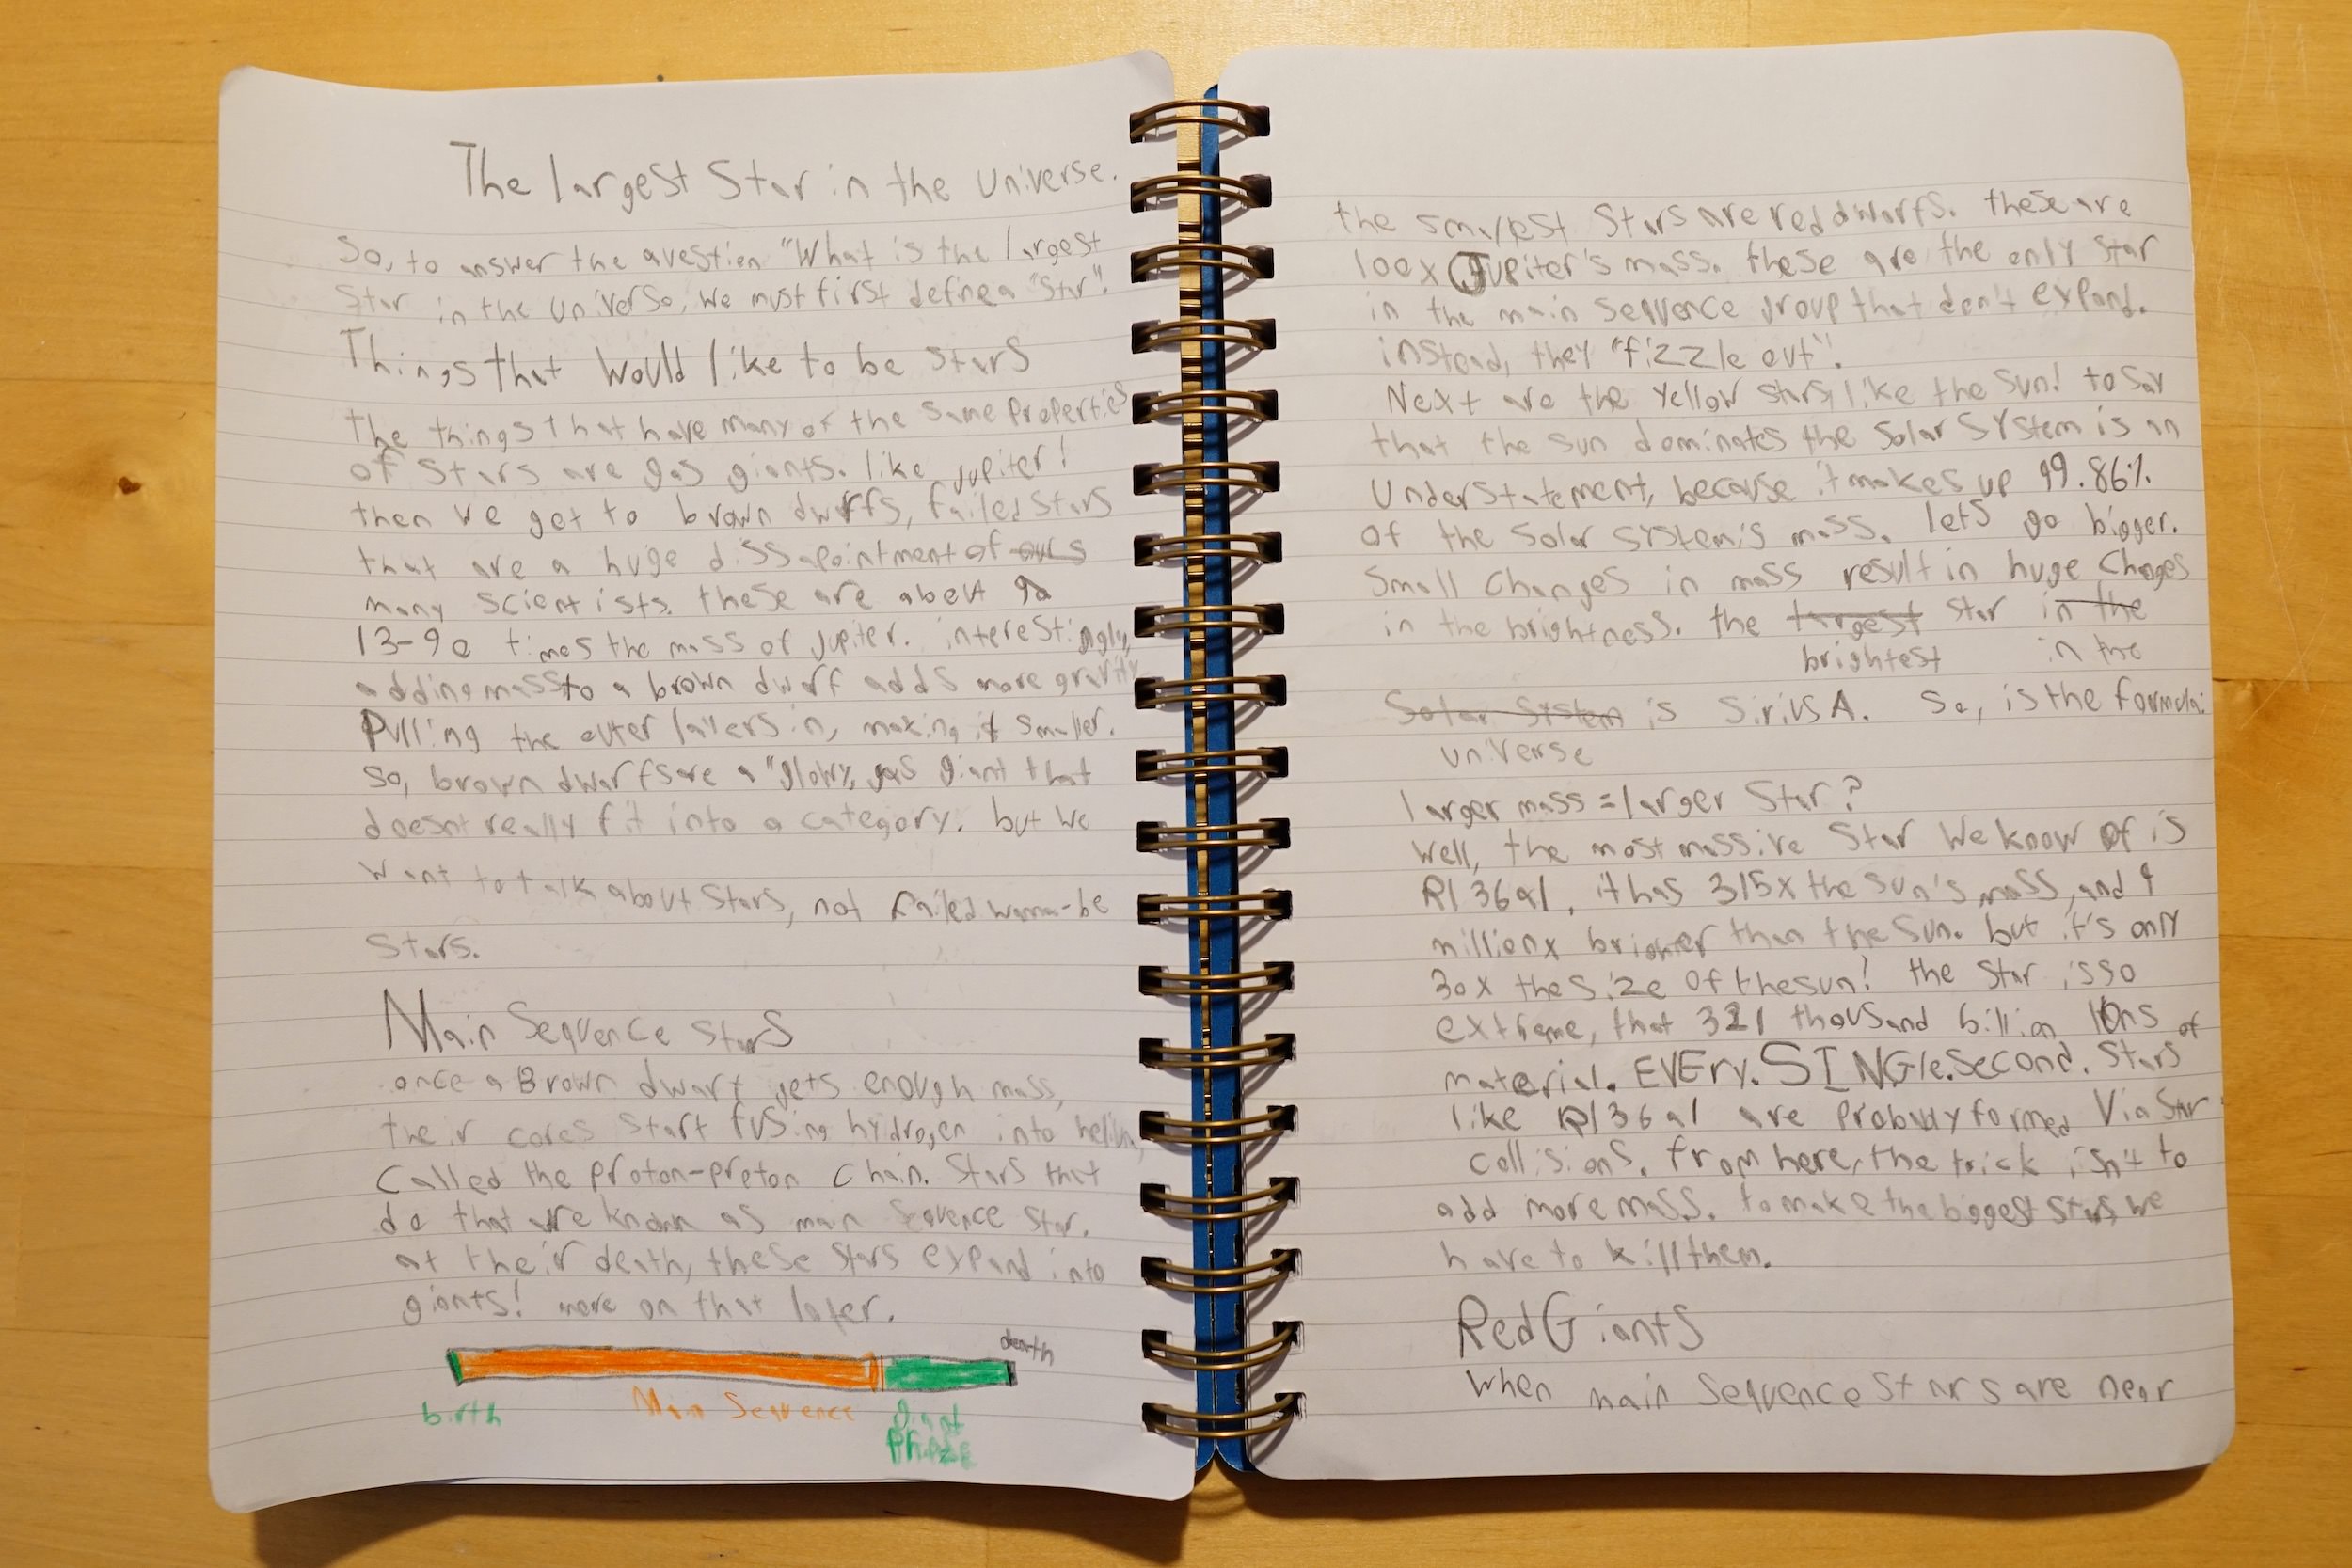 The largest Star in the universe.
So, to answer the question "What is the largest
Star in the universe, we must first define a "Star".
Things that would like to be stars
The things that have many of the same properties
of stars are gas giants. like jupiter!
then we get to brown dwarfs, failed stars
that are a huge dissapointment of
many scientists. these are about
13-90 times the mass of jupiter. interestingly,
adding mass to a brown dwarf adds more gravity
pulling the outer laiers in, making it smaller.
so, brown dwarfs are a "glowy, gas giant that
doesnt really fit into a category. but we
want to talk about stars, not failed wanna-be
stars.
Main Sequence stars
once a Brown dwarf gets enough mass,
their cores start fusing hydrogen into helium,
called the proton-proton chain. Stars that
do that are known as main sequence star.
at their death, these stars expand into
giants! more on that later.
death
birth
Main Sequence
giant
phaze
the smallest stars are red dwarfs. these are
100x Jupiter's mass. these are the only star
in the main sequence group that don't expand.
instead, they "fizzle out".
Next are the yellow stars, like the sun! to say
that the sun dominates the solar system is an
understatement, because it makes up 99.86%
of the solar system's mass. lets go bigger.
small changes in mass result in huge changes
in the brightness. the largest star in the
brightest in the
Solar System is Sirius A. So, is the formula:
universe
larger mass = larger star?
well, the most massive star we know of is
R136a1, it has 315x the sun's mass, and 9
million x brighter than the sun. but it's only
30x the size of the sun! the star is so
extreme, that 321 thousand billion tons of
material. EVEry. SINGle. second. stars
like R136a1 are probably formed via star
collisions. from here, the trick isn't to
add more mass. to make the biggest stars, we
have to kill them.
Red Giants
when main sequence stars are near